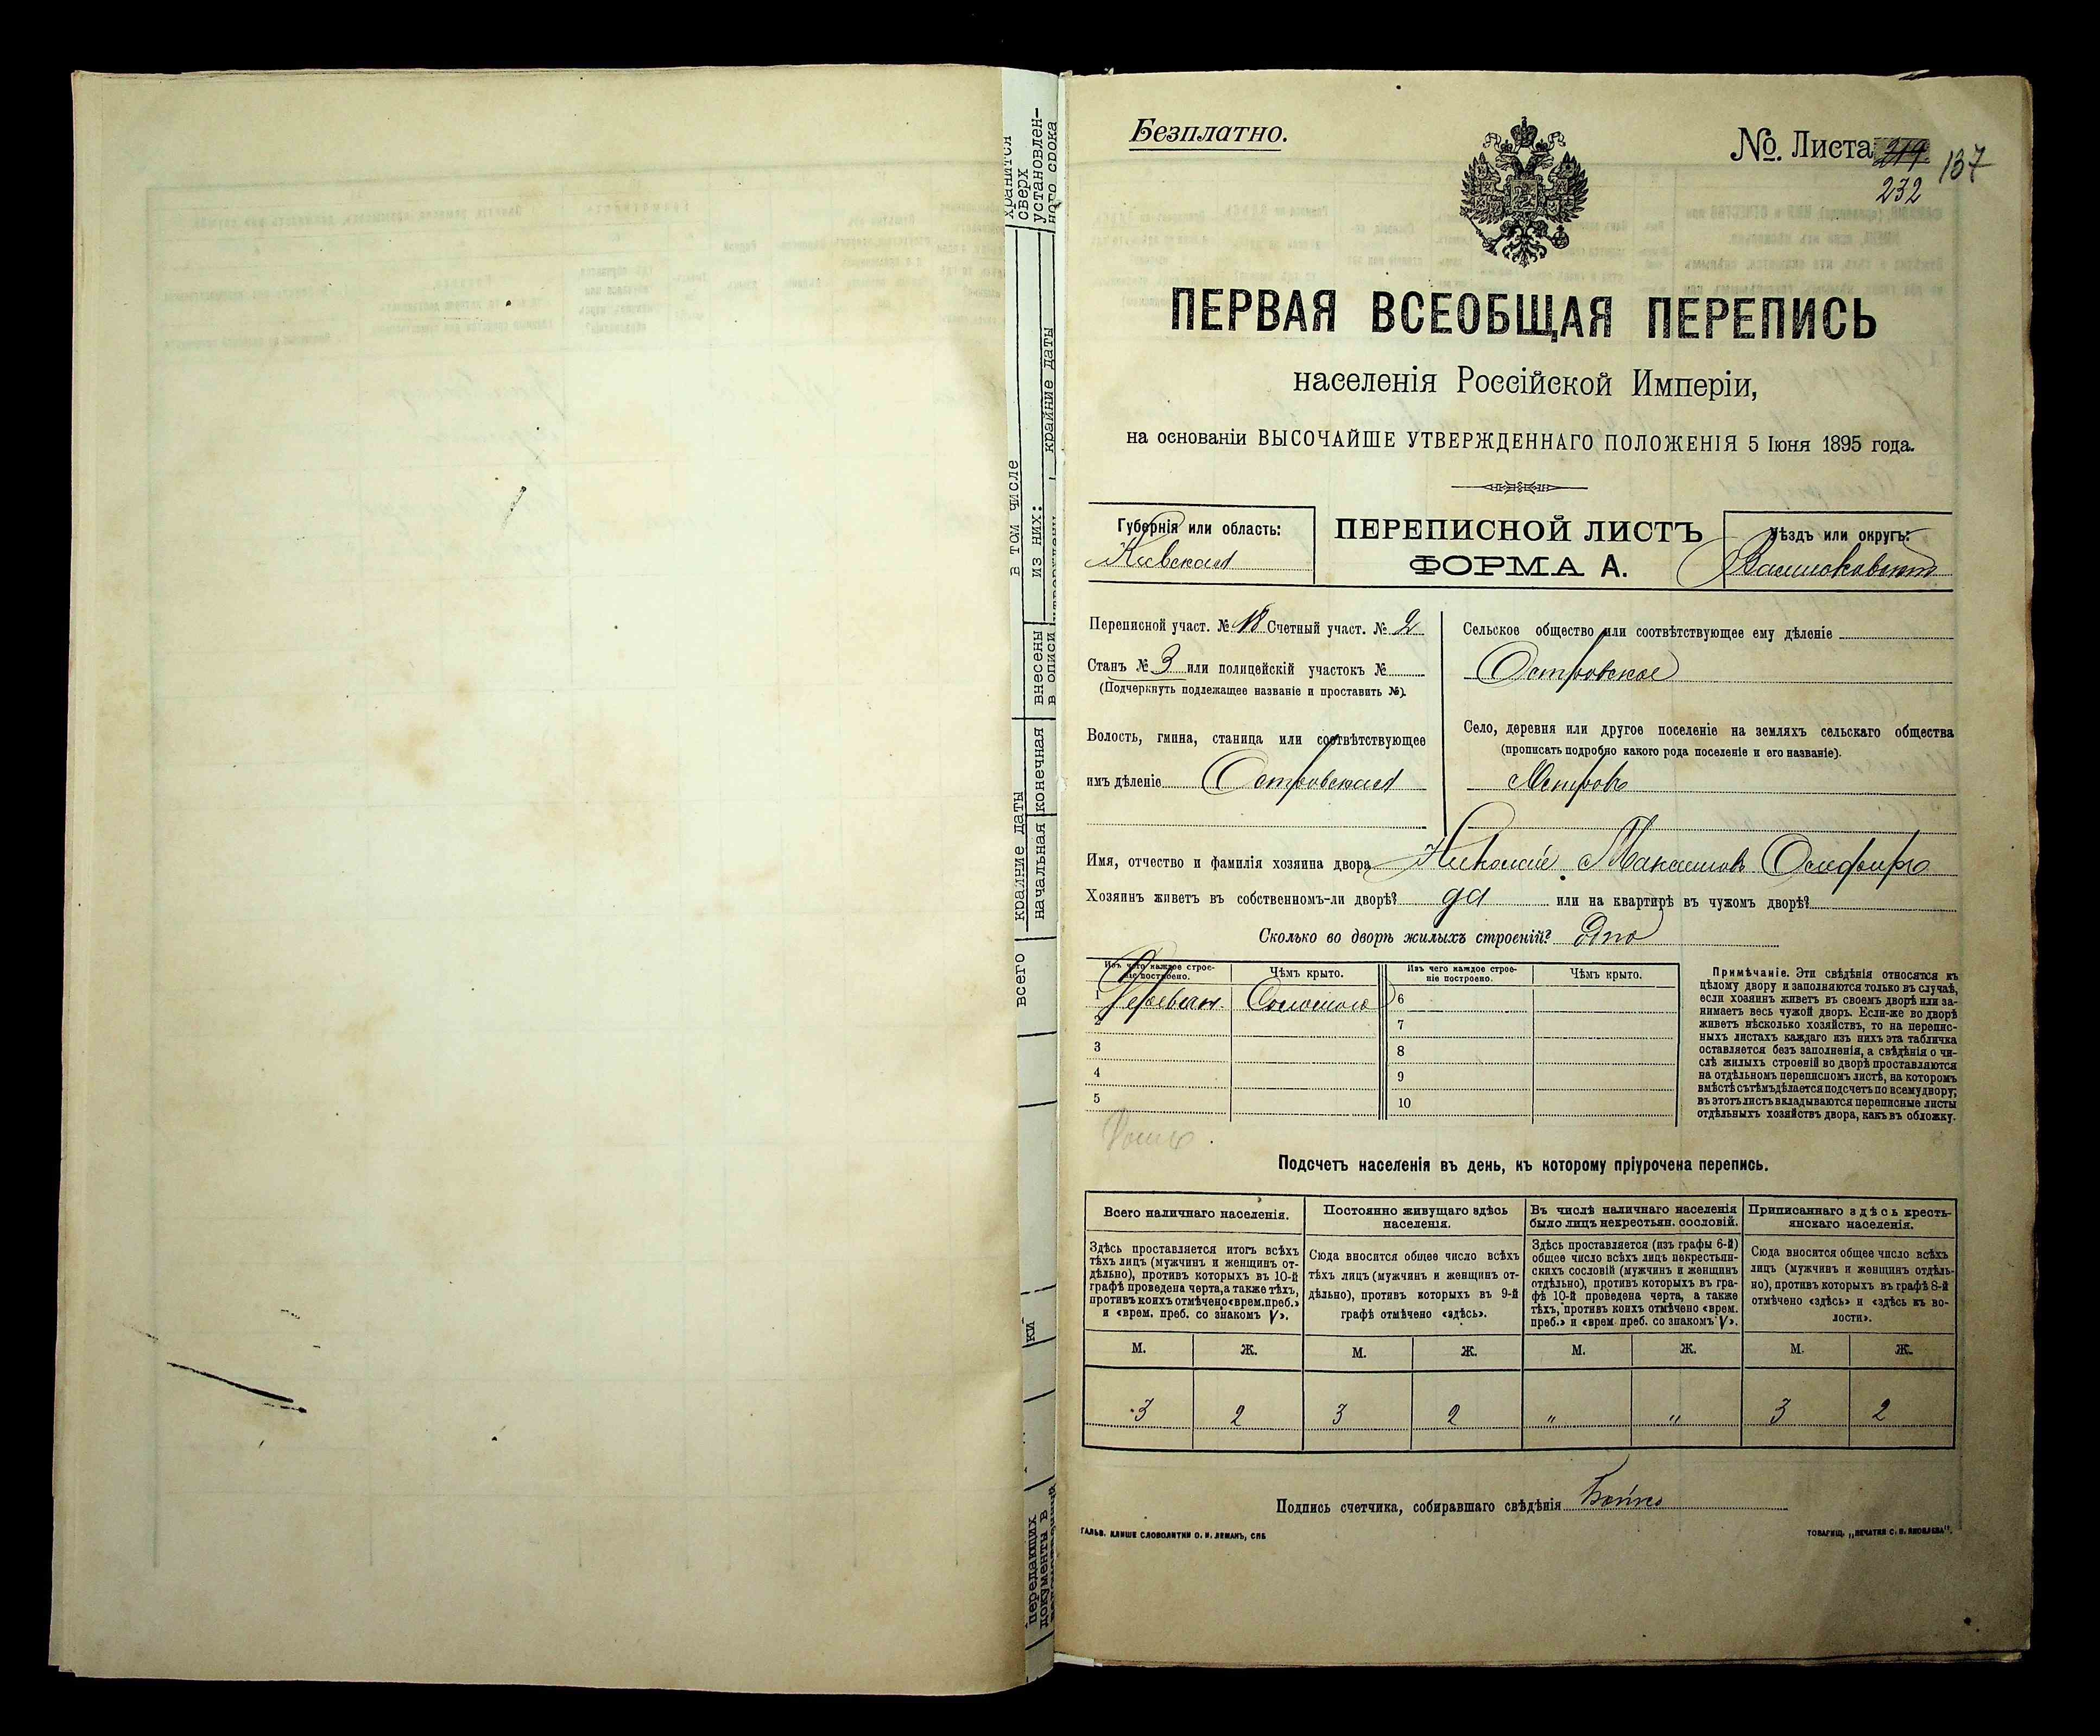 хранится
сверх
установлен-
ного срока
крайние даты
в том числе
из них:
внесены
в описи
конечная
начальная
крайние даты
всего
ки
передающих
документы в
Безплатно.
№. Листа 232 137
ПЕРВАЯ ВСЕОБЩАЯ ПЕРЕПИСЬ
населенія Россійской Имперіи,
на основаніи ВЫСОЧАЙШЕ УТВЕРЖДЕННАГО ПОЛОЖЕНІЯ 5 Іюня 1895 года.
Губернія или область:
Кіевская
ПЕРЕПИСНОЙ ЛИСТЪ
ФОРМА А.
Уѣздъ или округъ:
Васильковскій
Переписной участ. № 18 Счетный участ. № 2
Станъ № 3 или полицейскій участокъ №
(Подчеркнуть подлежащее названіе и проставить №).
Волость, гмина, станица или соотвѣтствующее
имъ дѣленіе Островская
Сельское общество или соотвѣтствующее ему дѣленіе
Островское
Село, деревня или другое поселеніе на земляхъ сельскаго общества
(прописать подробно какого рода поселеніе и его названіе).
Островъ
Имя, отчество и фамилія хозяина двора Николай Максимовъ
Хозяинъ живетъ въ собственномъ-ли дворѣ? да или на квартирѣ въ чужомъ дворѣ?
Сколько во дворѣ жилыхъ строеній? одно
Изъ чего каждое строе-
ніе построено.
Чѣмъ крыто.
Изъ чего каждое строе-
ніе построено.
Чѣмъ крыто.
1 Деревян. Соломою 6
2 7
3 8
4 9
5 10
Примѣчаніе. Эти свѣдѣнія относятся къ
цѣлому двору и заполняются только въ случаѣ,
если хозяинъ живетъ въ своемъ дворѣ или за-
нимаетъ весь чужой дворъ. Если-же во дворѣ
живетъ нѣсколько хозяйствъ, то на перепис-
ныхъ листахъ каждаго изъ нихъ эта табличка
оставляется безъ заполненія, а свѣдѣнія о чи-
слѣ жилыхъ строеній во дворѣ проставляются
на отдѣльномъ переписномъ листѣ, на которомъ
вмѣстѣ съ тѣмъ дѣлается подсчетъ по всему двору;
въ этотъ листъ вкладываются переписные листы
отдѣльныхъ хозяйствъ двора, какъ въ обложку.
Подсчетъ населенія въ день, къ которому пріурочена перепись.
Всего наличнаго населенія.
Здѣсь проставляется итогъ всѣхъ
тѣхъ лицъ (мужчинъ и женщинъ от-
дѣльно), противъ которыхъ въ 10-й
графѣ проведена черта, а также тѣхъ,
противъ коихъ отмѣчено «врем. преб.»
и «врем. преб. со знакомъ V».
Постоянно живущаго здѣсь
населенія.
Сюда вносится общее число всѣхъ
тѣхъ лицъ (мужчинъ и женщинъ от-
дѣльно), противъ которыхъ въ 9-й
графѣ отмѣчено «здѣсь».
Въ числѣ наличнаго населенія
было лицъ некрестьян. сословій.
Здѣсь проставляется (изъ графы 6-й)
общее число всѣхъ лицъ некрестьян-
скихъ сословій (мужчинъ и женщинъ
отдѣльно), противъ которыхъ въ гра-
фѣ 10-й проведена черта, а также
тѣхъ, противъ коихъ отмѣчено «врем.
преб.» и «врем преб. со знакомъ V».
Приписаннаго здѣсь кресть-
янскаго населенія.
Сюда вносится общее число всѣхъ
лицъ (мужчинъ и женщинъ отдѣль-
но), противъ которыхъ въ графѣ 8-й
отмѣчено «здѣсь» и «здѣсь къ во-
лости».
М. Ж. М. Ж. М. Ж. М. Ж.
3 2 3 2 „ „ 3 2
Подпись счетчика, собиравшаго свѣдѣнія Бойко
ГАЛЬВ. КЛИШЕ СЛОВОЛИТНИ О. И. ЛЕМАНЪ, СПБ
ТОВАРИЩ. „ПЕЧАТНЯ С. П. ЯКОВЛЕВА".